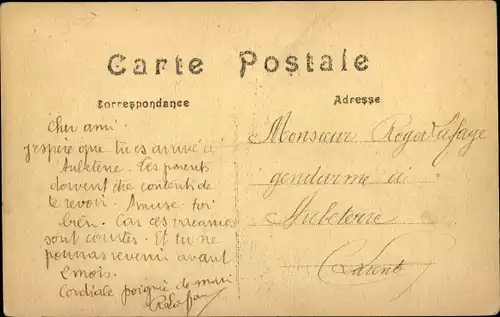 Carte Postale
Correspondance
Adresse
Cher ami.
j'espère que tu es arrivé à
Aubeterre. Tes parents
doivent être contents de
te revoir. Amuse toi
bien. Car ces vacances
sont courtes. Et tu ne
pourras revenir avant
2 mois.
Cordiale poignée de main
Monsieur Roger Lafaye
gendarme à
Aubeterre
Charente